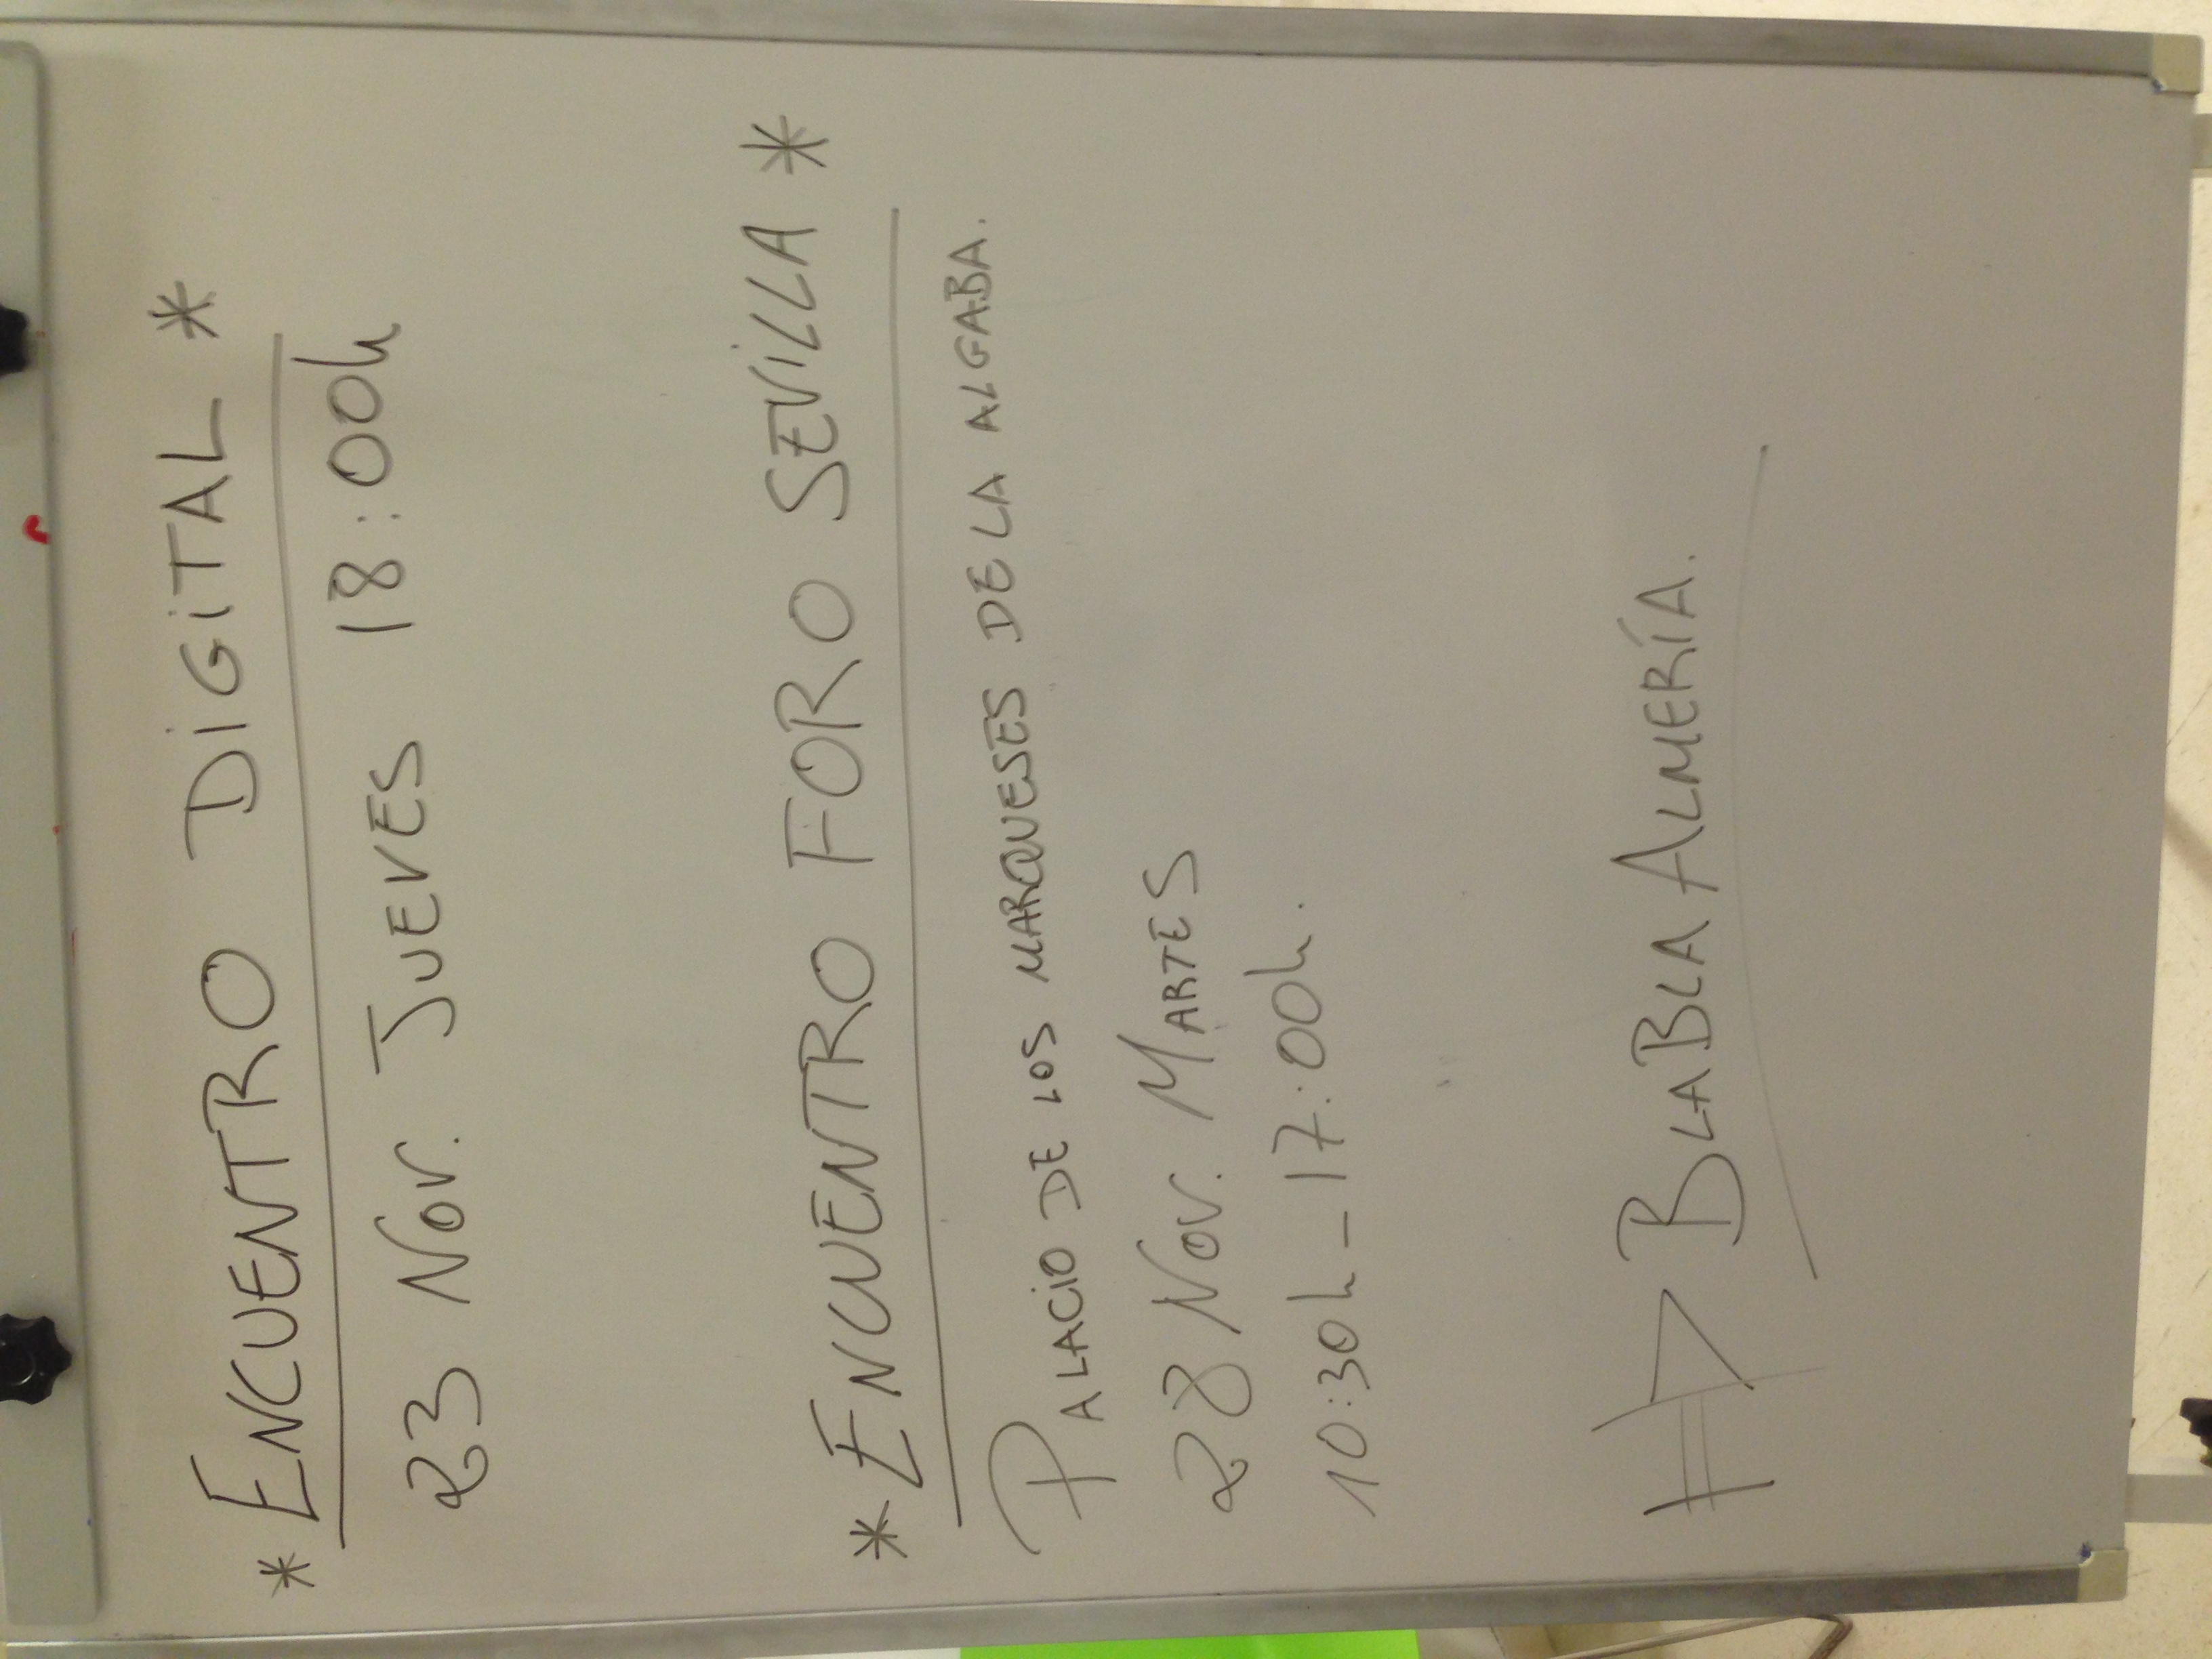 * ENCUENTRO DiGiTAL *
23 Nov. JUEVES 18:00h
* ENCUENTRO FORO SEViLLA *
PALACiO DE LOS MARQUESES DE LA ALGABA.
28 Nov. MARTES
10:30h - 17:00h.
=> BLABLA ALMERÍA.